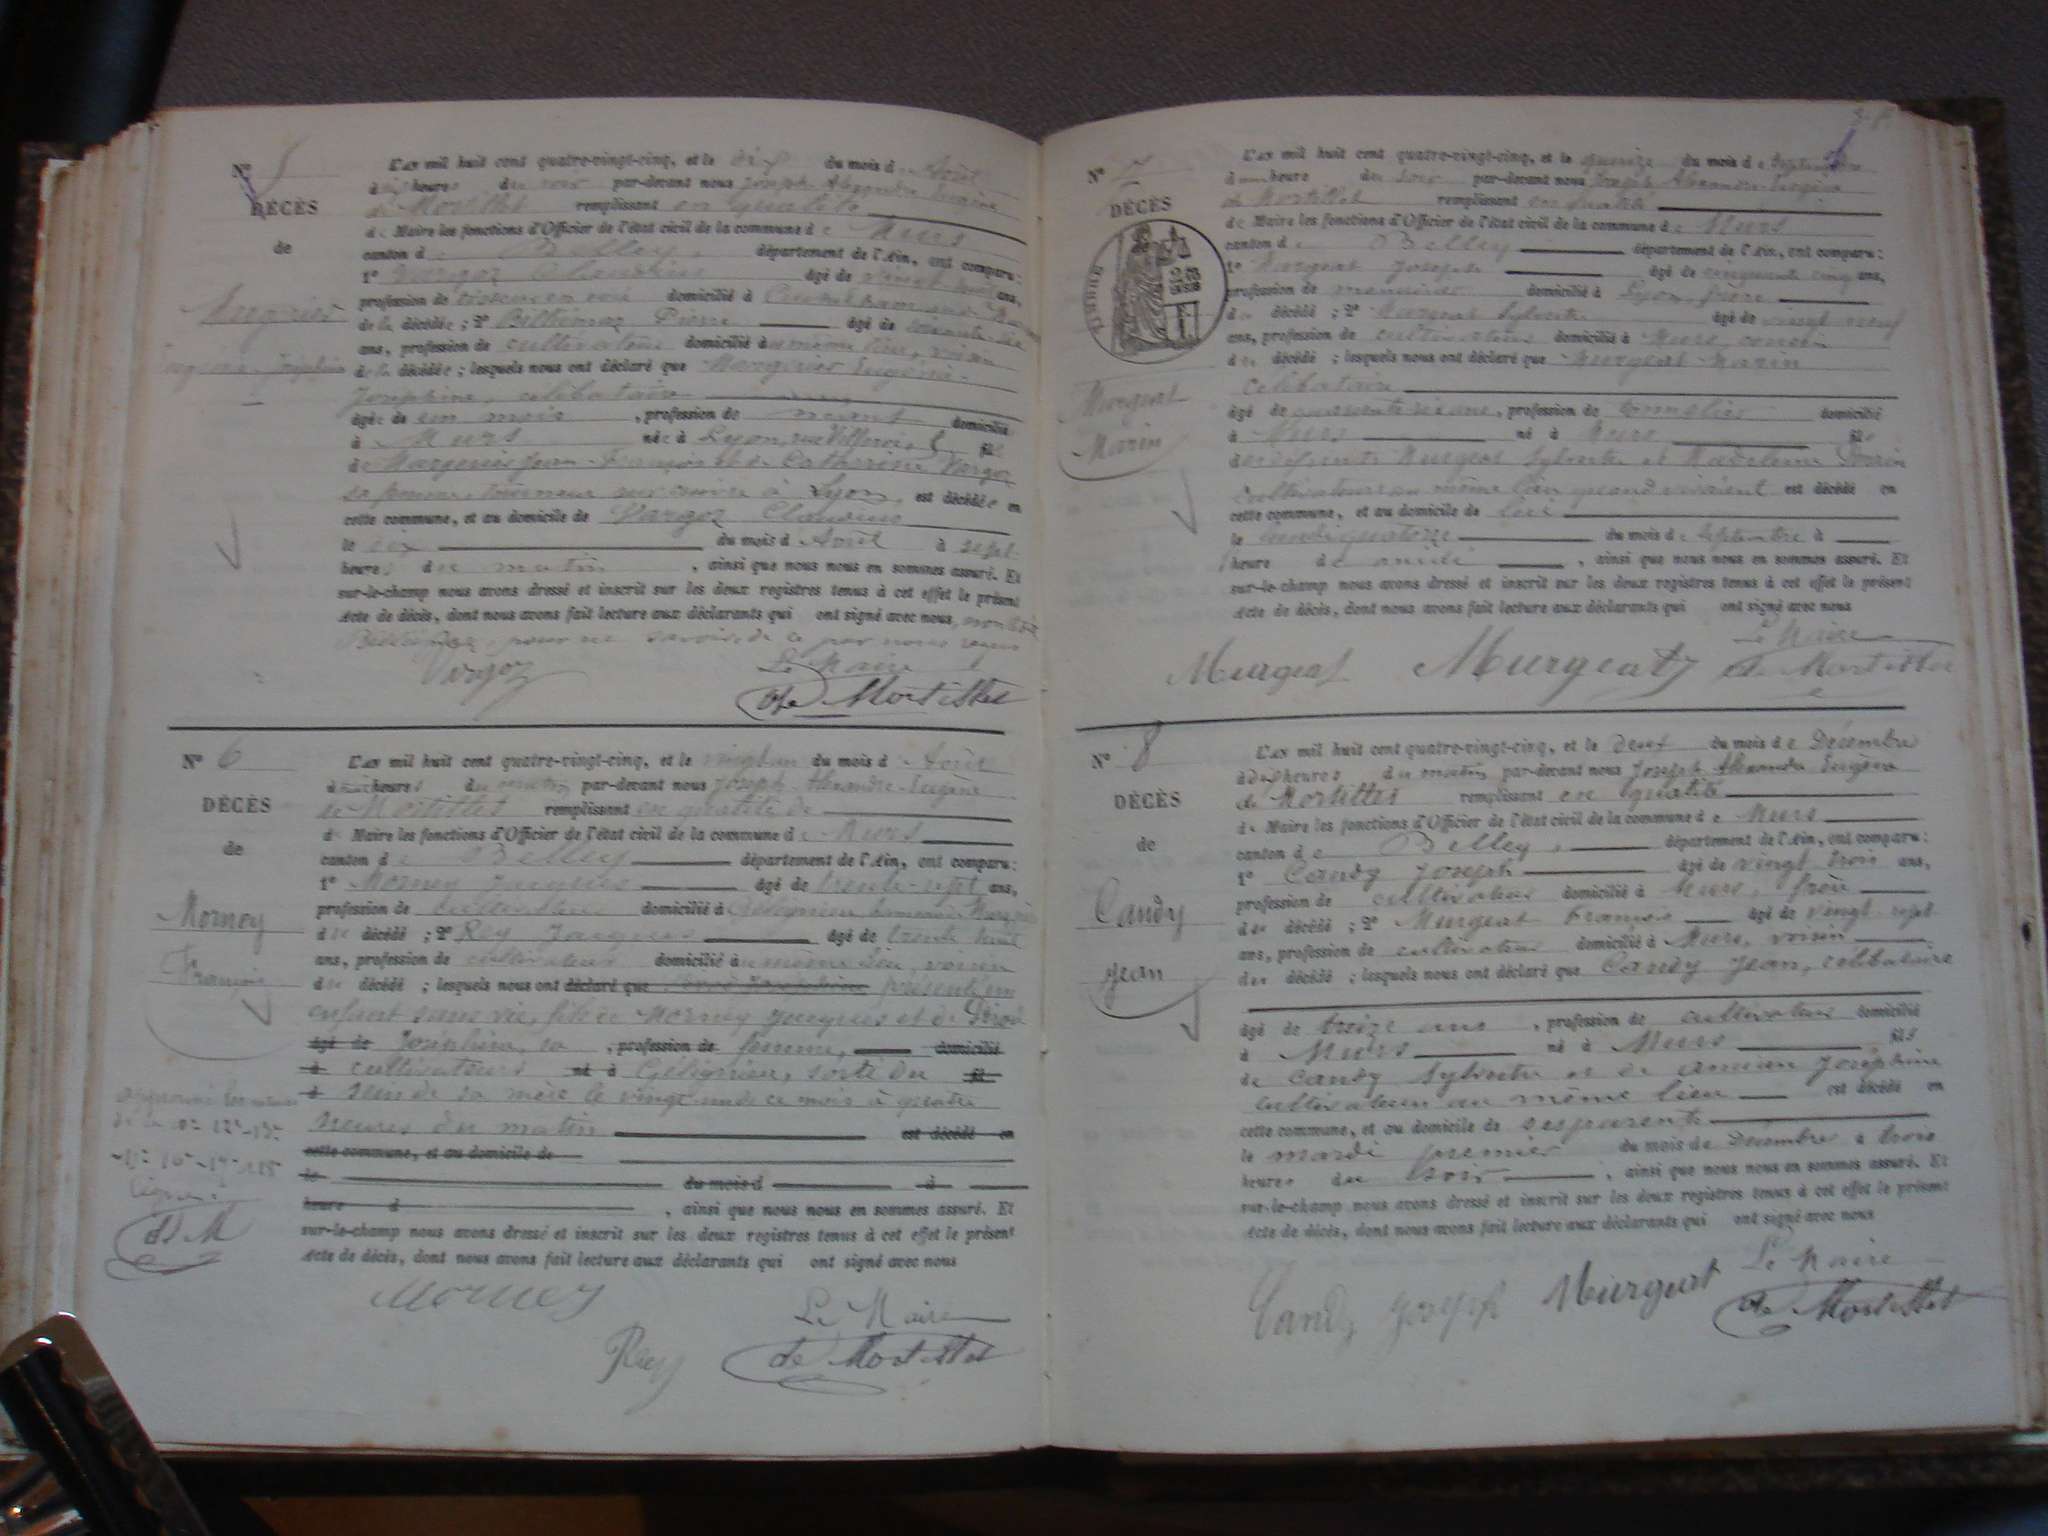 N° 5
DÉCÈS
de
L'AN mil huit cent quatre-vingt-cinq, et le six du mois d Août
à heures du soir par-devant nous Joseph Alexandre Eugène
de Mortillet remplissant en qualité
de Maire les fonctions d'Officier de l'état civil de la commune de Murs
canton de Belley, département de l'Ain, ont comparu :
1° Vargoz Claudius âgé de vingt ans,
profession de domicilié à
de la décédée ; 2° Pierre âgé de
ans, profession de cultivateur domicilié au même lieu, voisin
de la décédée ; lesquels nous ont déclaré que Eugénie
Joséphine, célibataire
âgée de un mois, profession de néant domicilié
à Murs née à Lyon, rue fille
de Jean-François et de Catherine Vargoz
sa femme, tourneur sur cuivre à Lyon, est décédée en
cette commune, et au domicile de Vargoz Claudius
le six du mois d Août à sept
heures du matin, ainsi que nous nous en sommes assuré. Et
sur-le-champ nous avons dressé et inscrit sur les deux registres tenus à cet effet le présent
Acte de décès, dont nous avons fait lecture aux déclarants qui ont signé avec nous, non
pour ne savoir, de ce par nous requis
Vargoz Le Maire
de Mortillet
N° 6
DÉCÈS
de
Morney
François
L'AN mil huit cent quatre-vingt-cinq, et le vingt un du mois d Août
à heures du matin par-devant nous Joseph-Alexandre-Eugène
de Mortillet remplissant en qualité de
de Maire les fonctions d'Officier de l'état civil de la commune de Murs
canton de Belley département de l'Ain, ont comparu :
1° Morney Jacques âgé de trente-sept ans,
profession de cultivateur domicilié à Gélignieu, hameau de Murs
du décédé ; 2° Rey Jacques âgé de trente huit
ans, profession de cultivateur domicilié au même lieu, voisin
du décédé ; lesquels nous ont déclaré que présenté un
enfant sans vie, fils de Morney Jacques et de
âgé de Joséphine, sa, profession de femme, domicilié
à cultivateurs né à Gélignieu, sorti du fil
à sein de sa mère le vingt un de ce mois à quatre
heures du matin est décédé en
cette commune, et au domicile de
le du mois d à
heure d, ainsi que nous nous en sommes assuré. Et
sur-le-champ nous avons dressé et inscrit sur les deux registres tenus à cet effet le présent
Acte de décès, dont nous avons fait lecture aux déclarants qui ont signé avec nous
lignes
de M
Morney
Le Maire
Rey de Mortillet
N° 7
DÉCÈS
TIMBRE
Murgeat
Marin
L'AN mil huit cent quatre-vingt-cinq, et le quinze du mois de Septembre
à une heure du soir par-devant nous Joseph Alexandre Eugène
de Mortillet remplissant en qualité
de Maire les fonctions d'Officier de l'état civil de la commune de Murs
canton de Belley département de l'Ain, ont comparu :
1° Murgeat Joseph âgé de cinquante cinq ans,
profession de menuisier domicilié à Lyon, frère
du décédé ; 2° Murgeat Sylvestre âgé de vingt neuf
ans, profession de cultivateur domicilié à Murs,
du décédé ; lesquels nous ont déclaré que Murgeat Marin
célibataire
âgé de ans, profession de tonnelier domicilié
à Murs né à Murs fils
des défunts Murgeat Sylvestre et Madeleine
cultivateurs au même lieu quand vivaient est décédé en
cette commune, et au domicile de
le quatorze du mois de Septembre à
heure de midi, ainsi que nous nous en sommes assuré. Et
sur-le-champ nous avons dressé et inscrit sur les deux registres tenus à cet effet le présent
Acte de décès, dont nous avons fait lecture aux déclarants qui ont signé avec nous
Le Maire
Murgeat Murgeat de Mortillet
N° 8
DÉCÈS
de
Candy
Jean
L'AN mil huit cent quatre-vingt-cinq, et le deux du mois de Décembre
à heures du matin par-devant nous Joseph Alexandre Eugène
de Mortillet remplissant en qualité
de Maire les fonctions d'Officier de l'état civil de la commune de Murs
canton de Belley, département de l'Ain, ont comparu :
1° Candy Joseph âgé de vingt trois ans,
profession de cultivateur domicilié à Murs, frère
du décédé ; 2° Murgeat François âgé de vingt sept
ans, profession de cultivateur domicilié à Murs, voisin
du décédé ; lesquels nous ont déclaré que Candy Jean, célibataire
âgé de treize ans, profession de cultivateur domicilié
à Murs né à Murs fils
de Candy Sylvestre et de Joséphine
cultivateurs au même lieu est décédé en
cette commune, et au domicile de ses parents
le mardi premier du mois de Décembre à trois
heures du soir, ainsi que nous nous en sommes assuré. Et
sur-le-champ nous avons dressé et inscrit sur les deux registres tenus à cet effet le présent
Acte de décès, dont nous avons fait lecture aux déclarants qui ont signé avec nous
Le Maire
Candy Joseph Murgeat de Mortillet